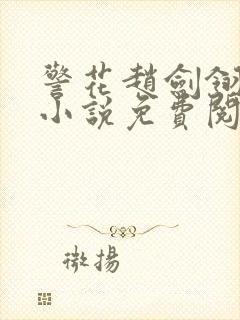 警花趙劍釵
小說免費閱
微揚